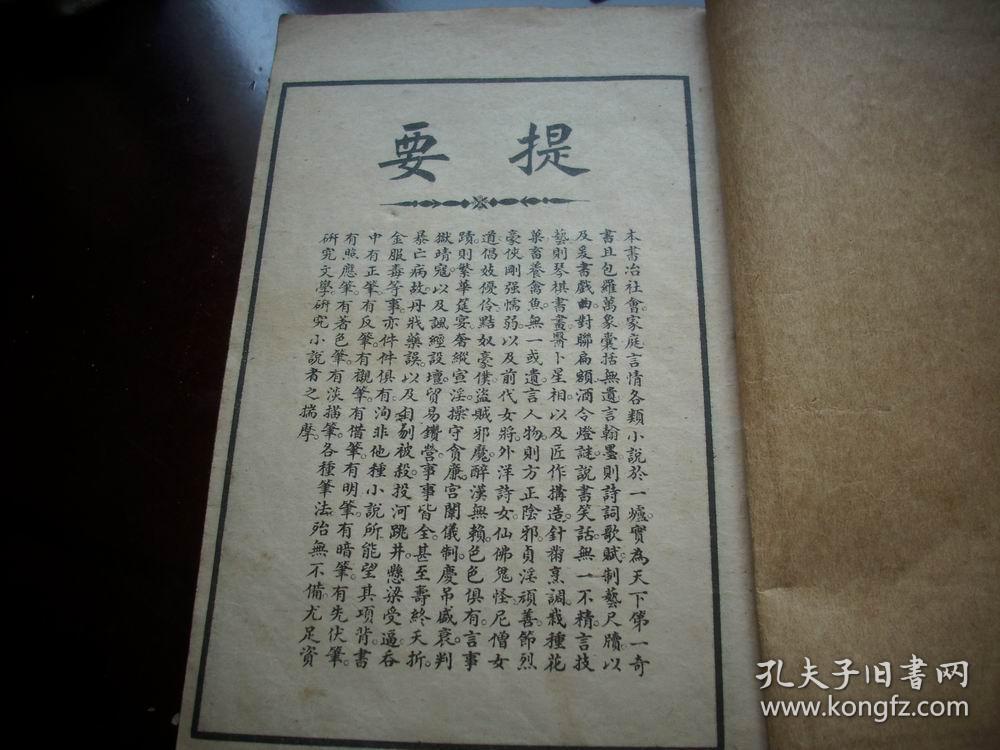 提要
本書冶社會家庭言情各類小說於一爐實為天下第一奇
書且包羅萬象囊括無遺言翰墨則詩詞歌賦制藝尺牘以
及爰書戲曲對聯扁額酒令燈謎說書笑話無一不精言技
藝則琴棋書畫醫卜星相以及匠作搆造針黹烹調栽種花
菓畜養禽魚無一或遺言人物則方正陰邪貞淫頑善節烈
豪俠剛强懦弱以及前代女將外洋詩女仙佛鬼怪尼僧女
道倡妓優伶黠奴豪僕盜賊邪魔醉漢無賴色色俱有言事
蹟則繁華筵宴奢縱宣淫操守貪廉宮闈儀制慶吊盛衰判
獄靖寇以及諷經設壇貿易鑽營事事皆全甚至壽終夭折
暴亡病故丹戕藥誤以及自刎被殺投河跳井懸梁受逼吞
金服毒等事亦件件俱有洵非他種小說所能望其項背書
中有正筆有反筆有襯筆有借筆有明筆有暗筆有先伏筆
有照應筆有著色筆有淡描筆各種筆法殆無不備尤足資
研究文學研究小說者之揣摩
孔夫子旧书网
www.kongfz.com